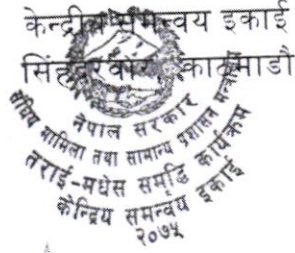 केन्द्रीय समन्वय इकाई
सिंहदरबार, काठमाडौं
नेपाल सरकार
संघीय मामिला तथा सामान्य प्रशासन मन्त्रालय
तराई-मधेस समृद्धि कार्यक्रम
केन्द्रिय समन्वय इकाई
२०७५